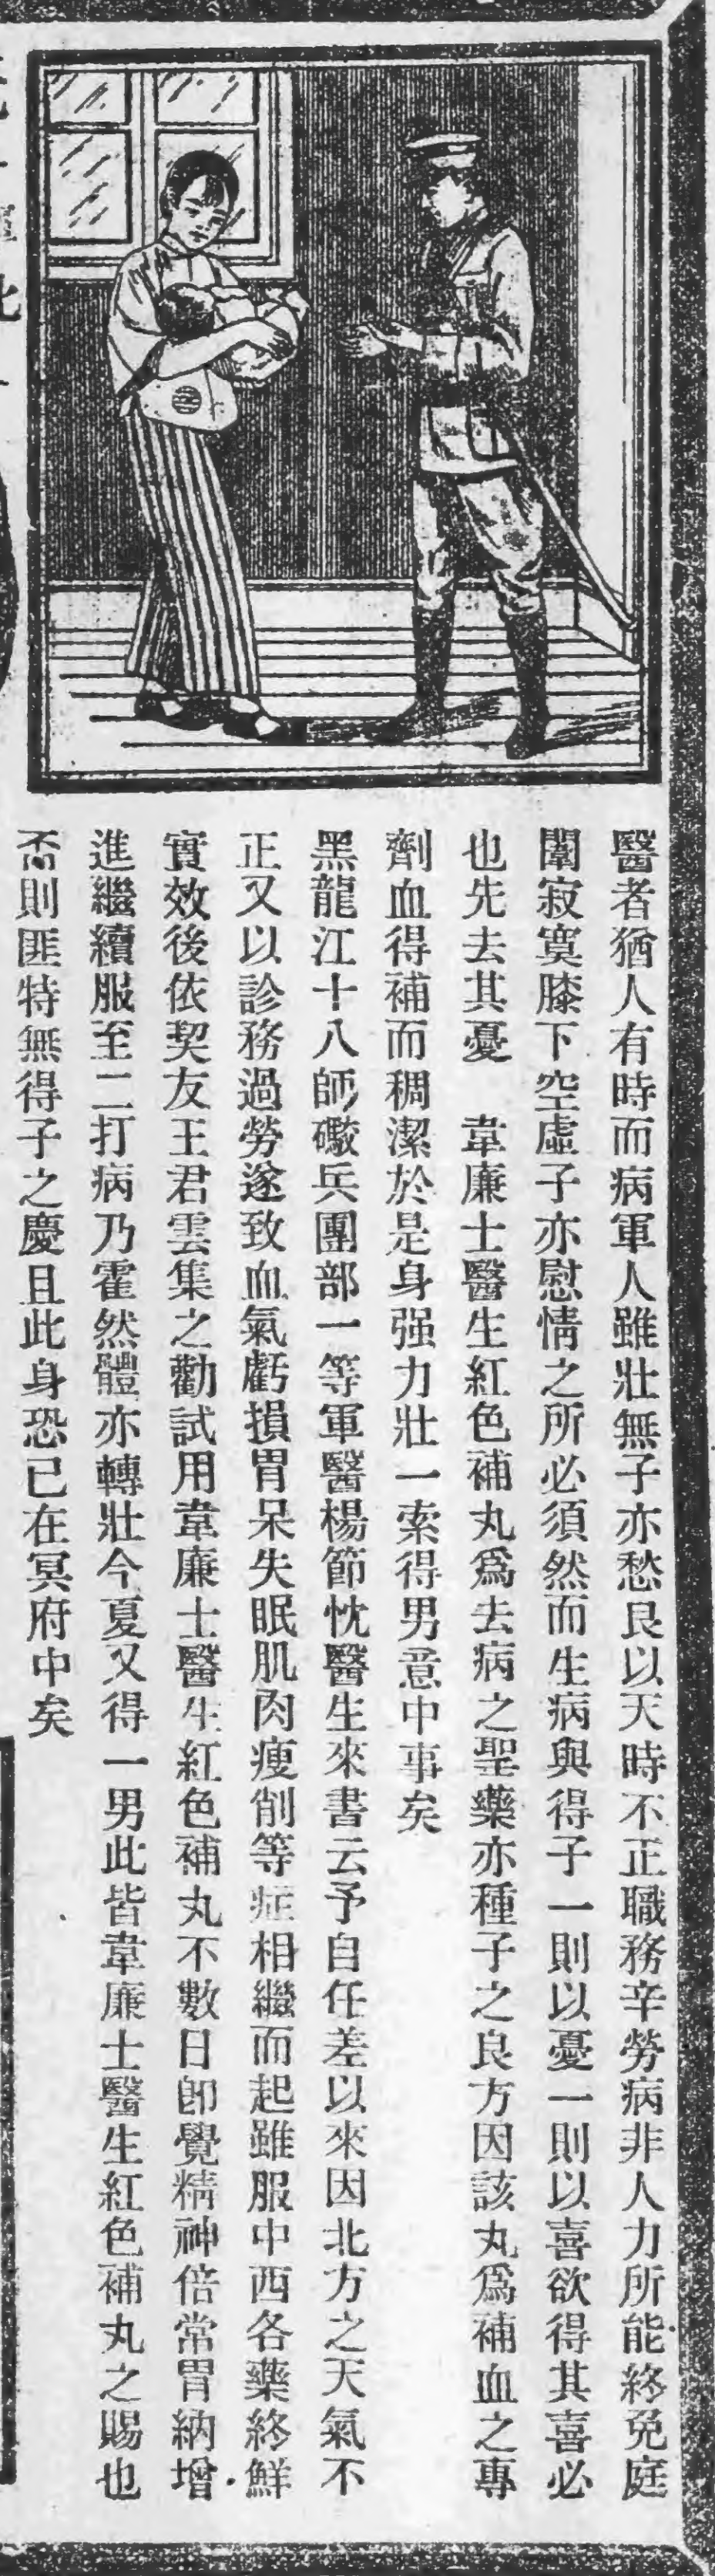 醫者猶人有時而病軍人雖壯無子亦愁良以天時不正職務辛勞病非人力所能終免庭
闈寂寞膝下空虛子亦慰情之所必須然而生病與得子一則以憂一則以喜欲得其喜必
也先去其憂　韋廉士醫生紅色補丸爲去病之聖藥亦種子之良方因該丸爲補血之專
劑血得補而稠潔於是身强力壯一索得男意中事矣
黑龍江十八師礮兵團部一等軍醫楊節忱醫生來書云予自任差以來因北方之天氣不
正又以診務過勞遂致血氣虧損胃呆失眠肌肉瘦削等症相繼而起雖服中西各藥終鮮
實效後依契友王君雲集之勸試用韋廉士醫生紅色補丸不數日卽覺精神倍常胃納增
進繼續服至二打病乃霍然體亦轉壯今夏又得一男此皆韋廉士醫生紅色補丸之賜也
否則匪特無得子之慶且此身恐已在冥府中矣